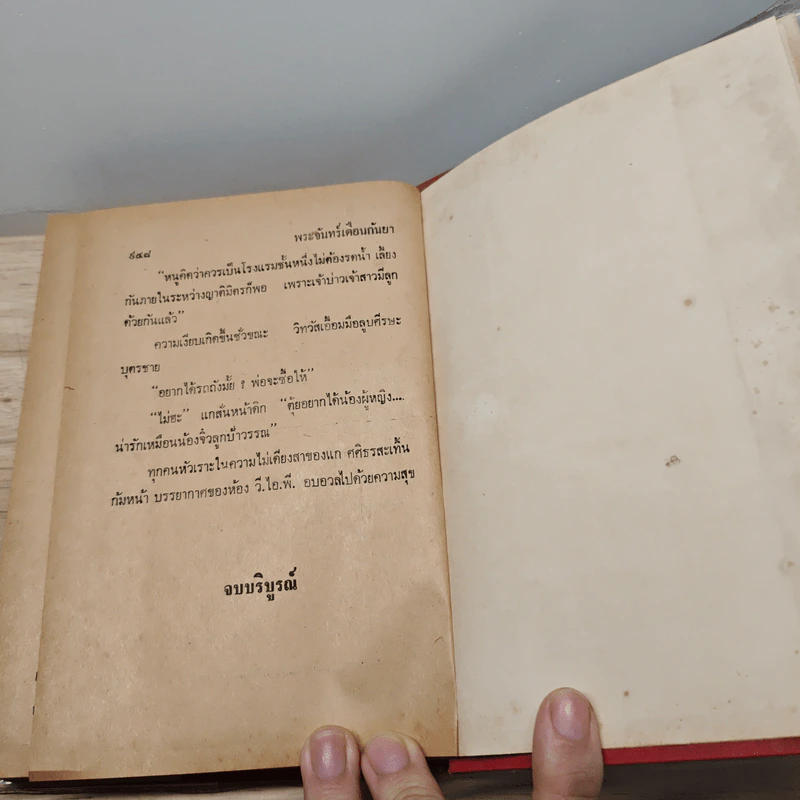 ๙๔๘
พระจันทร์เดือนกันยา
“หนูคิดว่าควรเป็นโรงแรมชั้นหนึ่งไม่ต้องรดน้ำ เลี้ยง
กันภายในระหว่างญาติมิตรก็พอ เพราะเจ้าบ่าวเจ้าสาวมีลูก
ด้วยกันแล้ว”
ความเงียบเกิดขึ้นชั่วขณะ วิทวัสเอื้อมมือลูบศีรษะ
บุตรชาย
“อยากได้รถถังมั้ย ? พ่อจะซื้อให้”
“ไม่ฮะ” แกสั่นหน้าดิก “ตุ้ยอยากได้น้องผู้หญิง....
น่ารักเหมือนน้องจิ๋วลูกป้าวรรณ”
ทุกคนหัวเราะในความไม่เดียงสาของแก ศศิธรสะเทิ้น
ก้มหน้า บรรยากาศของห้อง วี.ไอ.พี. อบอวลไปด้วยความสุข
จบบริบูรณ์